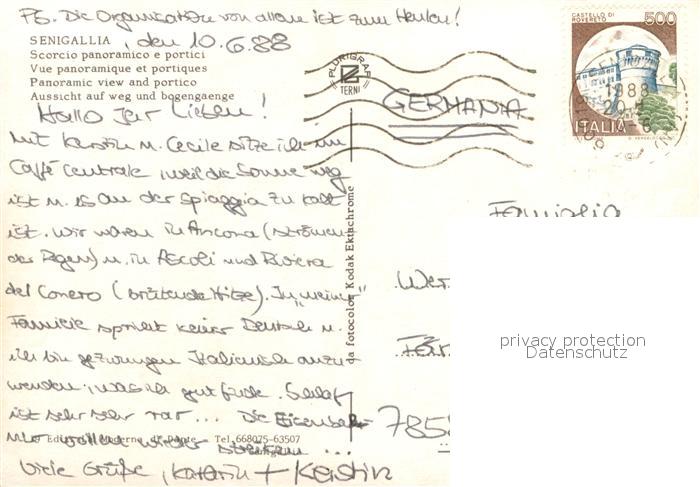 PS. Die Organisation von allem ist zum Heulen!
SENIGALLIA, den 10.6.88
Scorcio panoramico e portici
Vue panoramique et portiques
Panoramic view and portico
Aussicht auf weg und bogengaenge
Hallo Ihr Lieben!
Mit Kerstin u. Cecile sitze ich im
Caffé Centrale, weil die Sonne weg
ist u. es an der Spiaggia zu kalt
ist. Wir waren in Ancona (strömen
der Regen) u. in Ascoli und Riviera
del Conero (brütende Hitze). In "meiner"
Familie spricht keiner Deutsch u.
ich bin gezwungen Italienisch anzu-
wenden, was ich gut finde. Schlaf
ist sehr sehr rar... Die Eisenbahner
wollen wieder streiken...
Viele Grüße, Katrin + Kerstin
Tel. 668075-63507
da fotocolor Kodak Ektachrome
PLURIGRAF
TERNI
GERMANIA
CASTELLO DI
ROVERETO
500
ITALIA
1988
Famiglia
Wer
785
privacy protection
Datenschutz